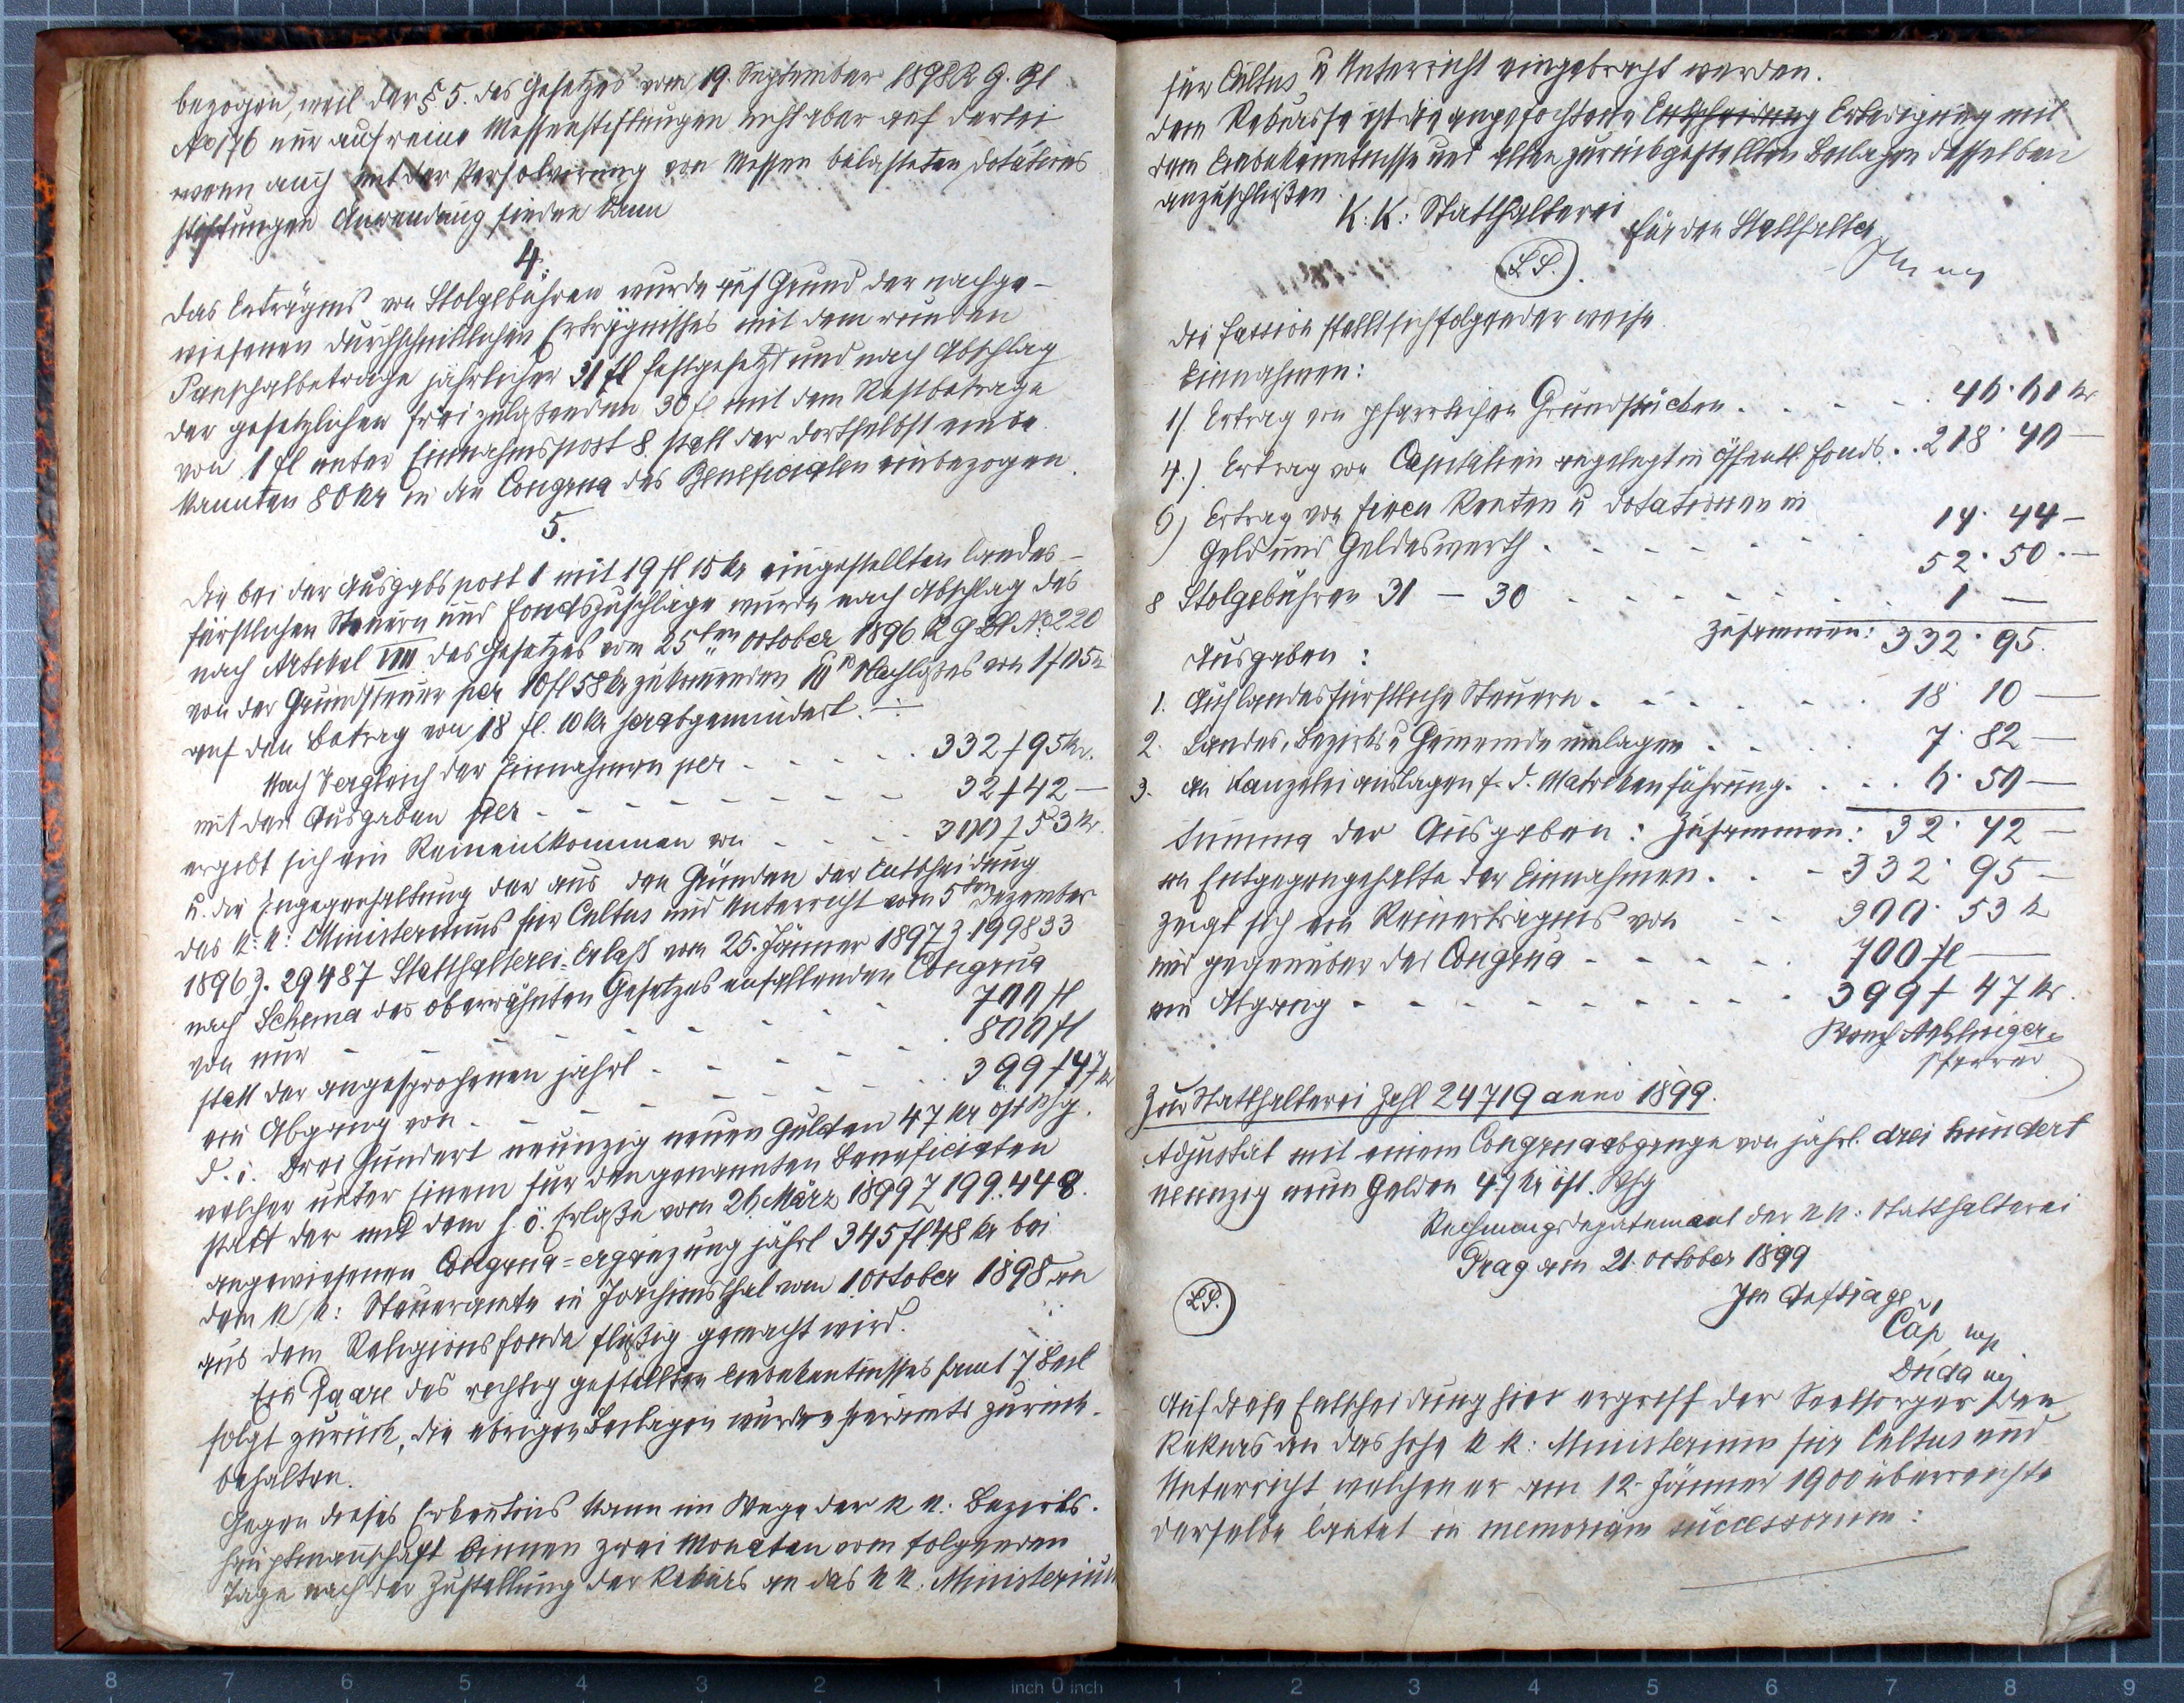 bezogen, weil der § 5. des Gesetzes vom 19. September 1898 R. G. Bl
No 176 nur auf reine Messenstiftungen nicht aber auf derlei
wenn auch mit der Persolvirung von Messen belasteten Dotations
stiftungen Anwendung finden kann
4.
Das Erträgnis von Stolgebühren wurde auf Grund der nachge-
wiesenen durchschnittlichen Erträgnisses mit dem runden
Pauschalbetrage jährlicher 31 fl festgesetzt und nach Abschlag
der gesetzlichen frei zulaßenden 30 fl mit dem Restbetrage
von 1 fl unter Einnahmspost 8. statt der dortselbst einbe
kannten 80 kr in die Congrua des Beneficiaten einbezogen.
5.
Die bei der Ausgabspost 1 mit 19 fl 15 kr eingestellten landes-
fürstlichen Steuern und Fondszuschläge wurde nach Abschlag des
nach Artikel VIII des Gesetzes vom 25ten October 1896 R G Bl No 220
von der Grundsteuer per 10 fl 58 kr zukommenden 10% Nachlaßes von 1 f 05 k
auf den Betrag von 18 fl. 10 kr herabgemindert. -
Nach Vergleich der Einnahmen per - - - - . 332 f 95 kr.
mit den Ausgaben per - - - - - - - - 32 f 42 -
ergibt sich ein Reineinkommen von - - - - 300 f 53 kr.
u. die Entgegenhaltung der aus den Gründen der Entscheidung
des k: k: Ministeriums für Cultus und Unterricht vom 5ten Dezember
1896 Z. 29487 Statthalterei-Erlaß vom 25. Jänner 1897 Z. 199833
nach Schema des oberwähnten Gesetzes entfallenden Congrua
von nur - - - - - - - - 700 fl
statt der angesprochenen jährl - - - - - - . 800 fl
ein Abgang von - - - - - - - - 399 f 47 kr
d. i. drei Hundert neunzig neuen Gulden 47 kr öst Whg.
welcher unter Einem für den genannten Beneficiaten
statt der mit dem h. ö. Erlaße vom 26. März 1899 Z 199.448.
angewiesenen Congrua-ergänzung jährl 345 fl 48 kr bei
dem k/k: Steueramte in Joachimsthal vom 1. October 1898 an
aus dem Religionsfonde flüßig gemacht wird.
Ein Paare des richtig gestellten Einbekentnisses samt 7 Beil
folgt zurück, die übrigen Beilagen wurden hieramts zurück-
behalten.
Gegen dieses Erkentnis kann im Wege der k k. Bezirks-
hauptmanschaft binnen zwei Monaten vom folgenden
Tage nach der Zustellung der Rekurs an das k k. Ministerium
für Cultus u Unterricht eingebracht werden.
dem Rekurse ist die angefochtene Entscheidung Erledigung mit
dem Einbekenntnisse und allen zurückgestellten Beilagen desselben
anzuschließen.
K. K: Statthalterei
Für den Statthalter
L. S.
die Fassion stellt sich folgender weise
Einnahmen:
1/ Ertrag von pfarrlichen Grundstücken . - . - . 46. 61 kr
4.) Ertrag von Capitalien angelegt in öffentl. Fonds . . 218. 40 -
6) Ertrag von fixen Renten u Dotationen in
Geld und Geldeswerth . - - - - - . 14. 44 -
52. 50. -
8 Stolgebühren 31 - 30 - - - - - . . 1. -
Zusammen: 332. 95.
Ausgaben:
1. Auf landesfürstliche Steuern. - - - . - . 18 10 -
2. Landes, Bezirks u Gemeinde umlagen . - . . 7. 82 -
3. an Kanzleiauslagen f. d. Matrikenführung. . . . 6. 50 -
Summa der Ausgaben: Zusammen: 32. 42 -
im Entgegengehalte der Einnahmen. . - 332. 95 -
zeigt sich ein Reinerträgnis von - - 300. 53 k
und gegenüber der Congrua - - - - . 700 fl -
ein Abgang - - - - - - - - - . 399 f 47 kr.
Pfarrer
Zur Statthalterei Zahl 24719 anno 1899.
Adjustirt mit einem Congruaabgange von jährl. drei hundert
neunzig neun Gulden 47 kr öst. Whg
Rechnungsdepartement der k k: Statthalterei
Prag am 21. October 1899
L. S.
Cap mp
Duda mp
Auf diese Entscheidung hier ergriff der Seelsorger den
Rekurs an das hohe k k: Ministerium für Cultus und
Unterricht welchen er am 12. Jänner 1900 überreichte
derselbe lautet in memoriam successorum: